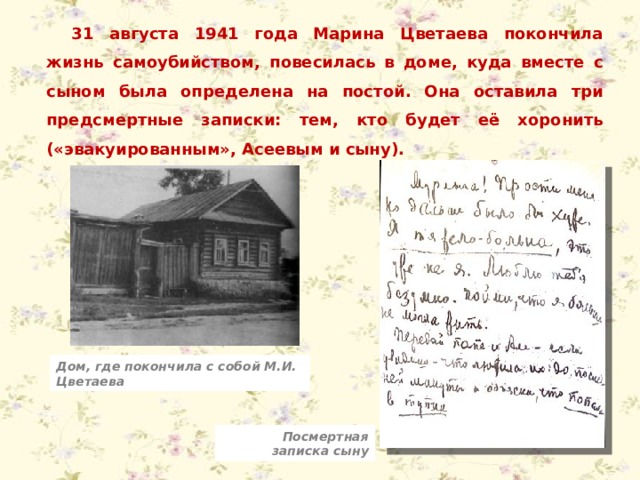 31 августа 1941 года Марина Цветаева покончила
жизнь самоубийством, повесилась в доме, куда вместе с
сыном была определена на постой. Она оставила три
предсмертные записки: тем, кто будет её хоронить
(«эвакуированным», Асеевым и сыну).
Мурлыга! Прости меня
но дальше было бы хуже.
Я тяжело-больна, это
уже не я. Люблю тебя
безумно. Пойми, что я больше
не могла жить.
Передай папе и Але - если
увидишь - что любила их до послед-
ней минуты и объясни, что попала
в тупик
Дом, где покончила с собой М.И.
Цветаева
Посмертная
записка сыну